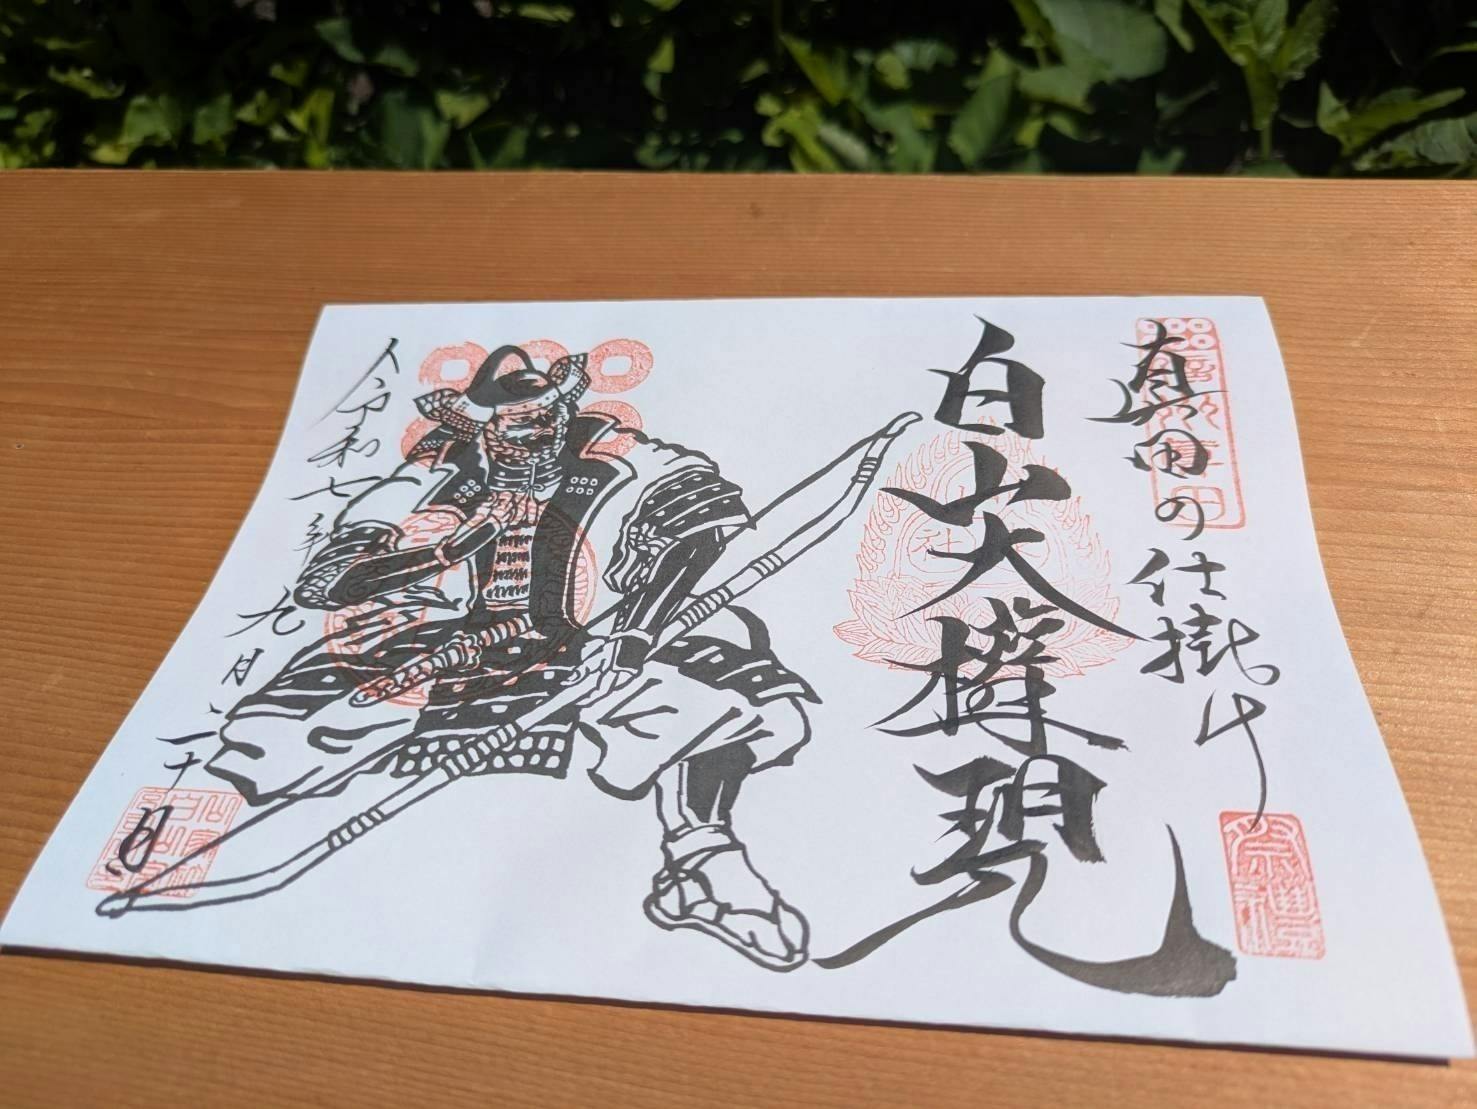 真田の仕掛け
白山大権現
令和七年九月二十日